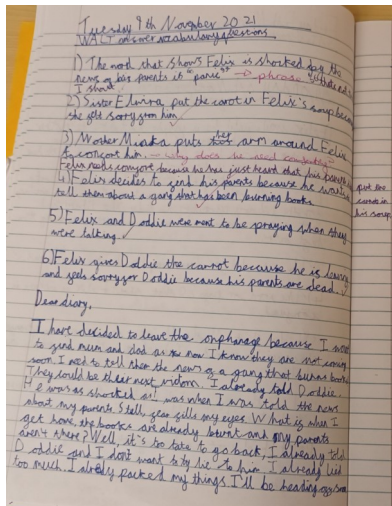 Tuesday 9th November 2021
WALT answer vocabulary questions
1) The word that shows Felix is shocked by the
news of his parents is "panic" → phrase
I shout
2) Sister Elwira put the carot in Felix's soup because
she feels sorry for him
3) Mother Minka puts her arm around Felix
to concort him. - why does he need comforting?
Felix needs comfort because he has just heard that his parents
4) Felix decides to send his parents because he wants to
tell them about a gang that has been burning books
put the
carot in
his soup
5) Felix and Doddie were ment to be praying when they
were talking.
6) Felix gives Doddie the carrot because he is
and feels sorry for Doddie because his parents are dead.
Dear diary,
I have decided to leave the orphanage because I want
to send mum and dad as now I know they are not coming
soon. I need to tell them the news of a gang that burns books
They could be their next victims. I already told Doddie.
He was as shocked as I was when I was told the news
about my parents. Still fear fills my eyes. What is when I
get home, the books are already burnt and my parents
aren't there? Well, it's to late to go back, I already told
Doddie and I don't want to lie to him. I already lied
too much. I alredy packed my things I'll be heading off soon